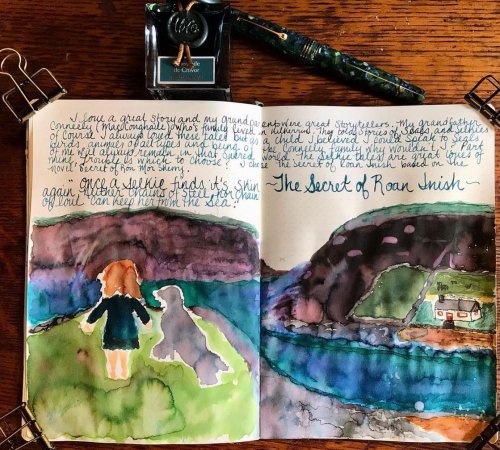 I love a great Story and my Grandparents were great Storytellers. My grandfather
Conneely (MacConghaile) who's family lived in They told Stories of Seals and Selkies
of Course I always loved these tales but as a child I believed I could Speak to Seals,
birds, animals of all types and being a of the Conneely Family who wouldn't! Part
of me will always remain in that Sacred World. The Selkie tales are great loves of
mine. Trouble is which to choose? I chose The Secret of Roan Inish based on
novel Secret of Ron Mor Skerry.
"Once a Selkie finds it's skin
again, neither chains of steel nor chains
of love can keep her from the Sea."
~The Secret of Roan Inish~